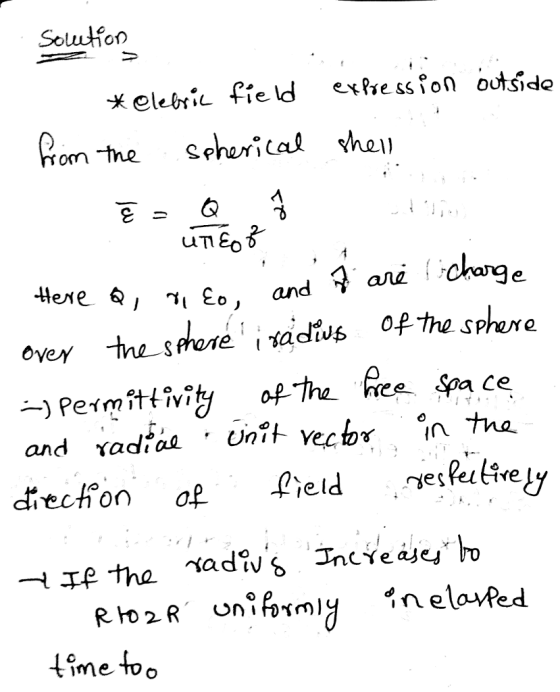 Solution
* elebric field expression outside
from the spherical shell
ε̅ = Q / 4πε₀r² r̂
Here Q, r, ε₀, and r̂ are charge
over the sphere, radius of the sphere
→ Permittivity of the free space
and radial unit vector in the
direction of field respectively
→ If the radius Increases to
R to 2R uniformly in elasped
time to